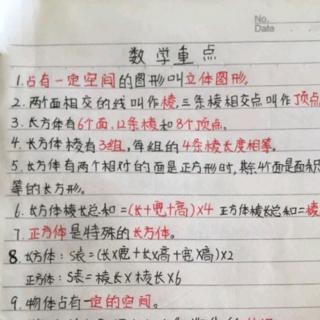 No.
Date
数学重点
1.占有一定空间的图形叫立体图形.
2.两个面相交的线叫作棱,三条棱相交点叫作顶点
3.长方体有6个面,12条棱和8个顶点.
4.长方体棱有3组,每组的4条棱长度相等.
5.长方体有两个相对的面是正方形时,其余4个面是面积
等的长方形.
6.长方体棱长总和=(长+宽+高)×4 正方体棱长总和=棱
7.正方体是特殊的长方体.
8长方体:S表=(长×宽+长×高+宽×高)×2
正方体:S表=棱长×棱长×6
9.物体占有一定的空间.